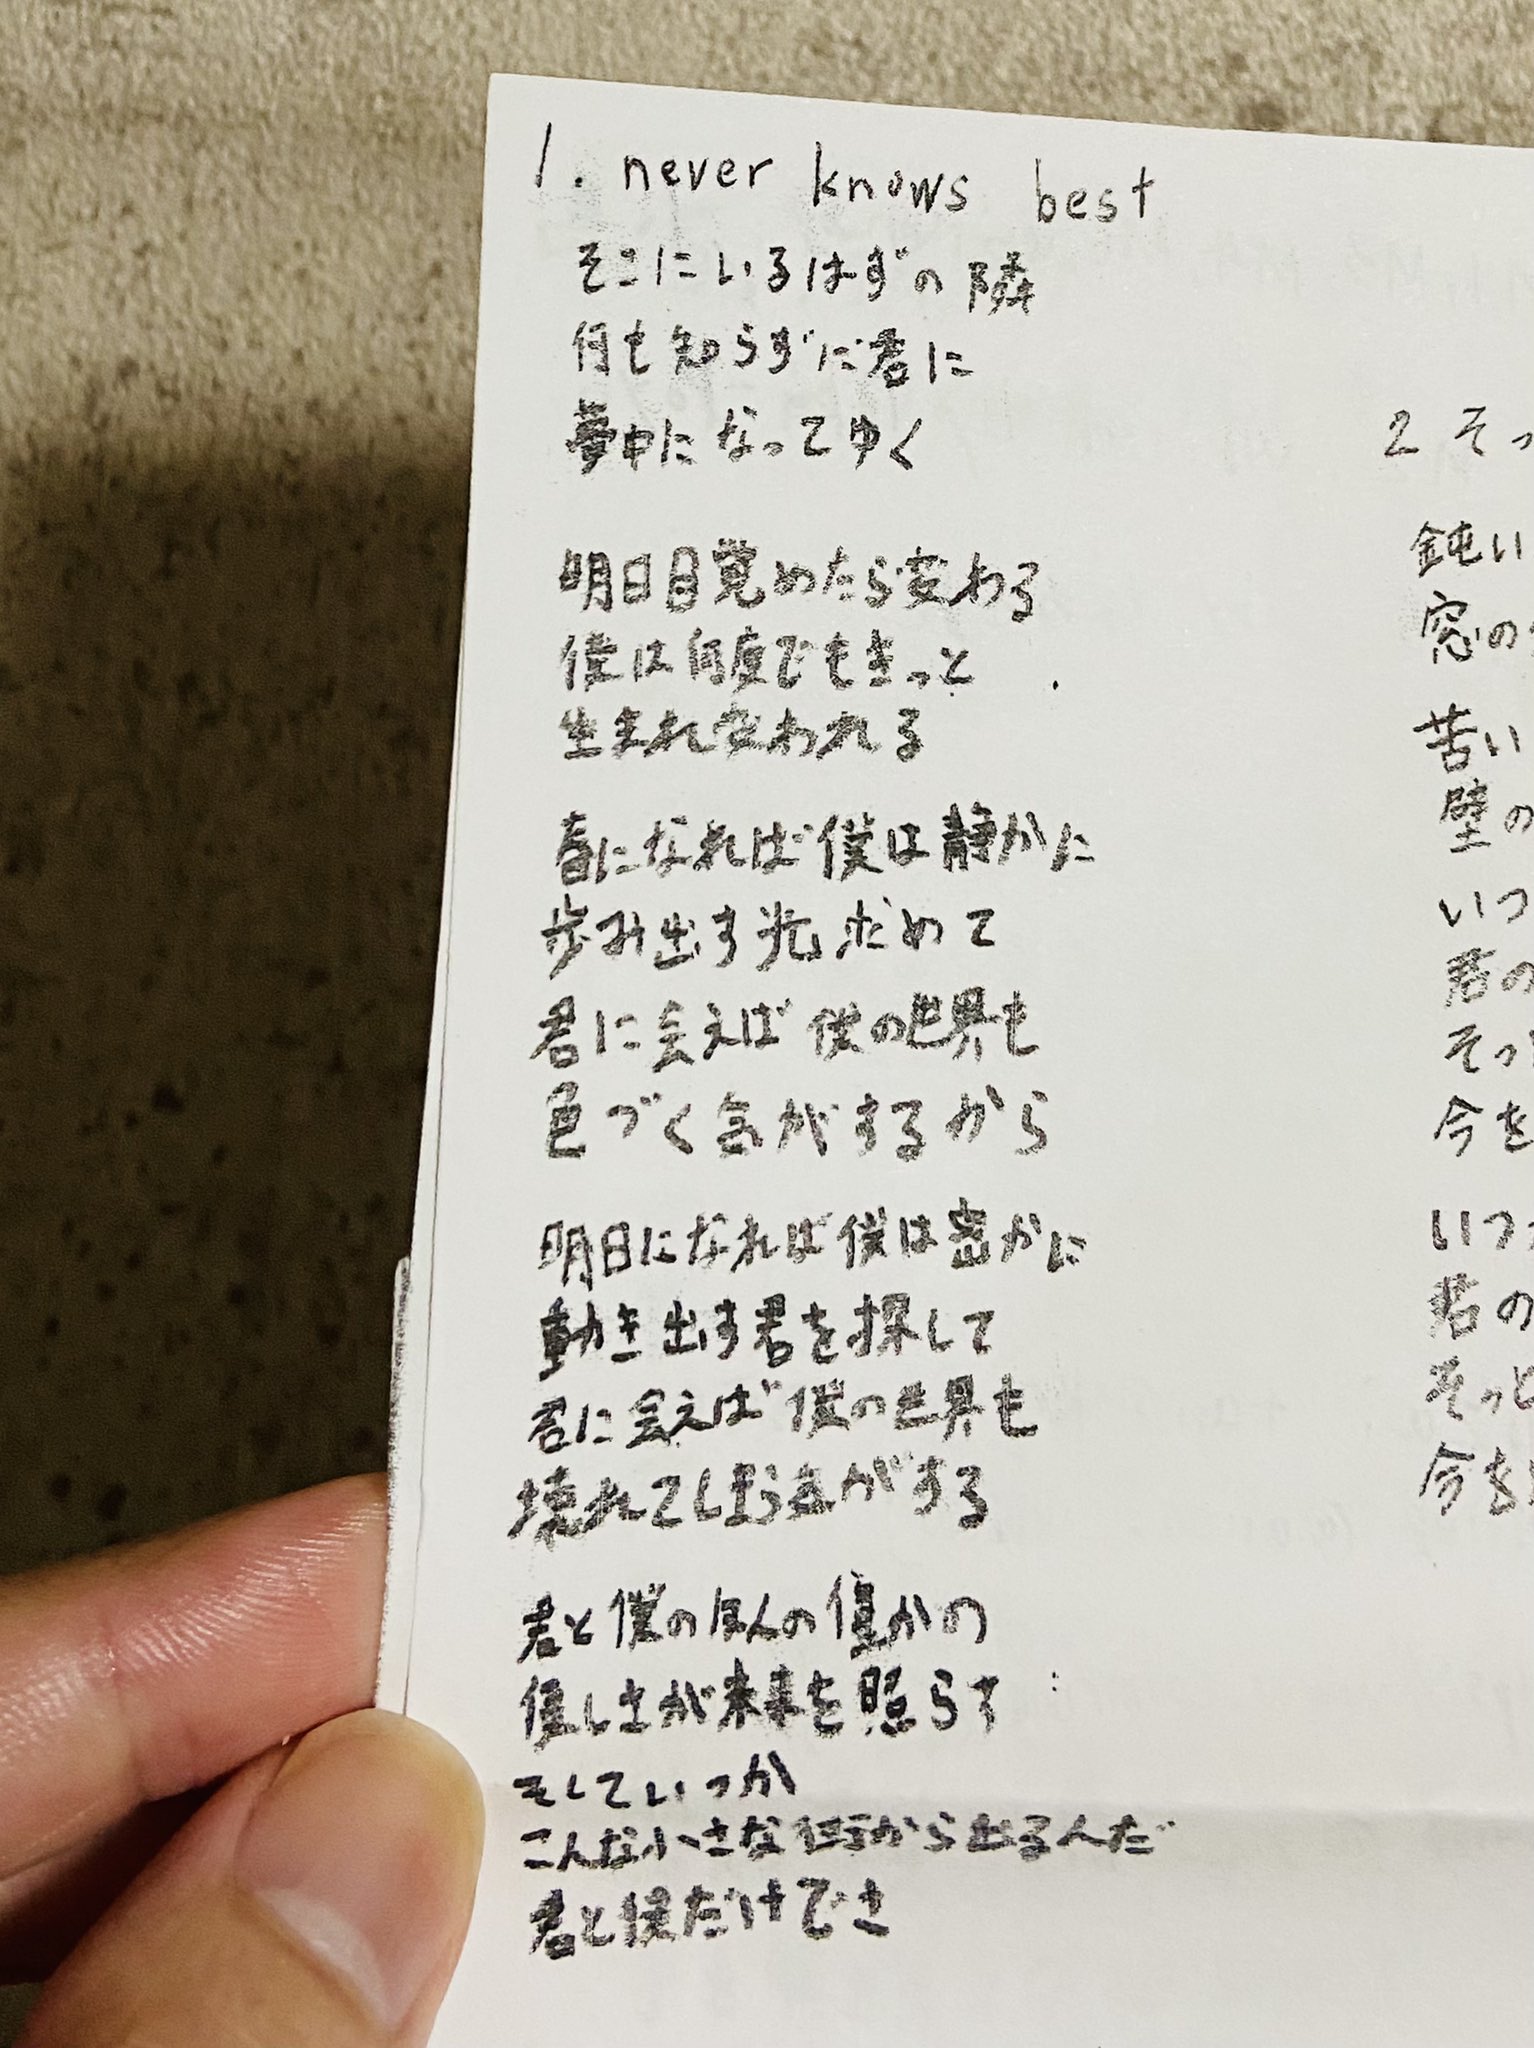 1. never knows best
そこにいるはずの隣
何も知らずに君に
夢中になってゆく
明日目覚めたら変わる
僕は何度でもきっと
生まれ変われる
春になれば僕は静かに
歩み出す光求めて
君に会えば僕の世界も
色づく気がするから
明日になれば僕は密かに
動き出す君を探して
君に会えば僕の世界も
壊れてしまう気がする
君と僕のほんの僅かの
優しさが未来を照らす
そしていつか
こんな小さな街から出るんだ
君と僕だけでさ
2 そっ
鈍い
窓の
苦い
壁の
いつ
君の
そっ
今を
いつ
君の
そっと
今を